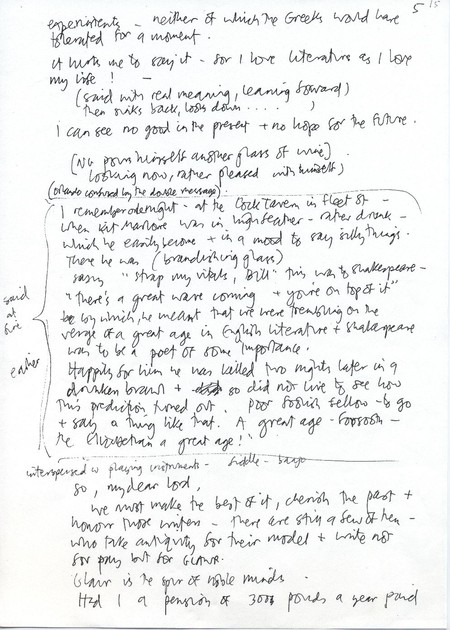 5 15
experiments - neither of which the Greeks would have
tolerated for a moment.
It hurts me to say it - for I love literature as I love
my life! -
(said with real meaning, leaning forward)
then sinks back, looks down ..... )
I can see no good in the present + no hope for the future.
(NG pours himself another glass of wine)
looking now, rather pleased with himself)
(Orlando confused by the double message).
I remember one night - at the Cock Tavern in Fleet St -
when Kit Marlowe was in high feather - rather drunk -
which he easily became + in a mood to say silly things.
There he was (brandishing glass)
saying "strap my vitals, Bill" this was to Shakespeare -
"there's a great wave coming + you're on top of it"
by which, he meant that we were trembling on the
verge of a great age in English literature + Shakespeare
was to be a poet of some importance.
Happily for him he was killed two nights later in a
drunken brawl + so did not live to see how
this prediction turned out. Poor foolish fellow - to go
+ say a thing like that. A great age - foosooth -
the Elizabethan a great age!"
said
at
fire
earlier
interspersed w playing instruments - fiddle -
So, my dear lord,
we must make the best of it, cherish the past +
honour those writers - there are still a few of them -
who take antiquity for their model + write not
for pay but for GLAWR.
Glawr is the spur of noble minds.
Had I a pension of 300 pounds a year paid